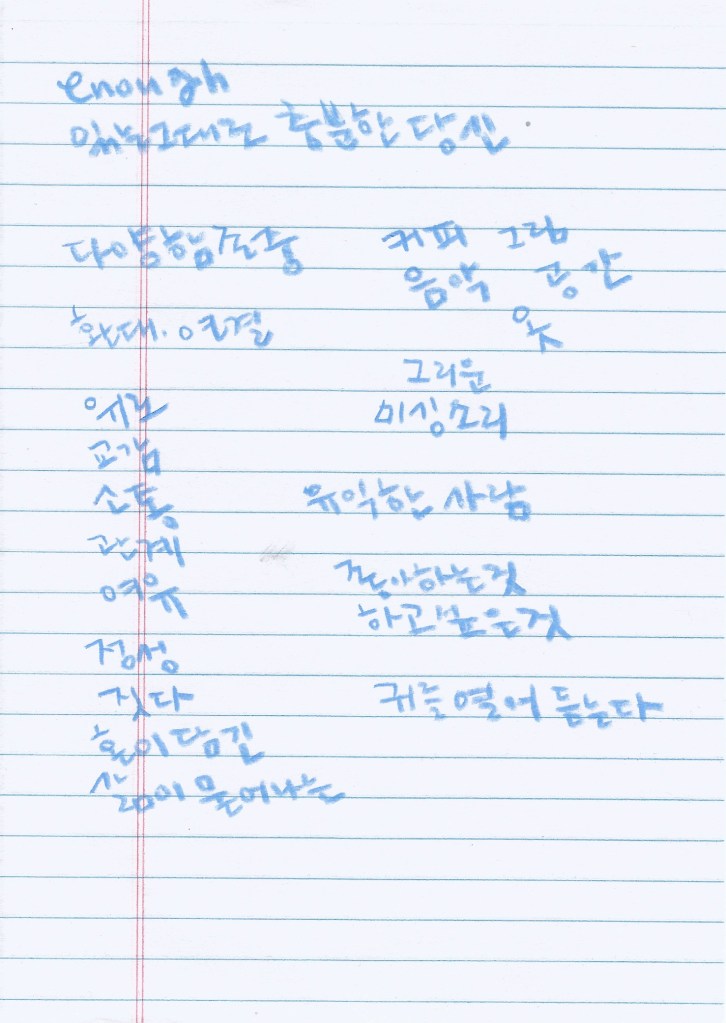 enough
있는그대로 충분한 당신
다양함존중
환대. 연결
위로
교감
소통
관계
여유
정성
짓다
혼이담긴
삶이 묻어나는
커피 그림
음악 공간
옷
그리운
미싱소리
유익한 사람
좋아하는것
하고싶은것
귀를 열어 듣는다